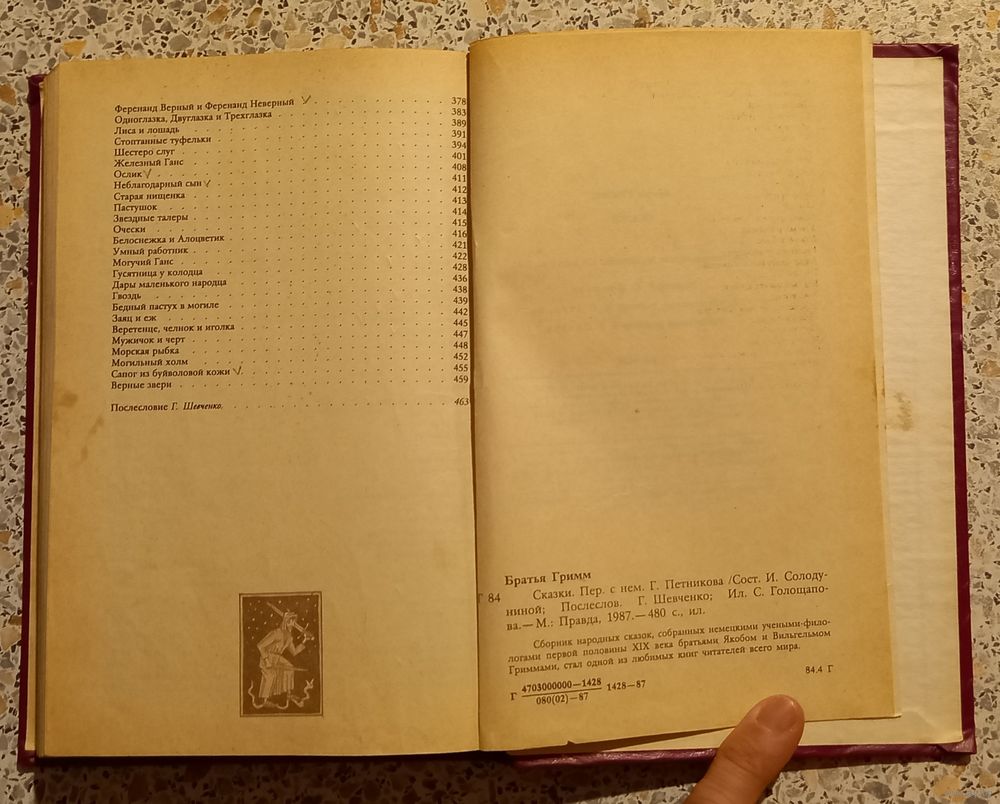 Ференанд Верный и Ференанд Неверный 378
Одноглазка, Двуглазка и Трехглазка 383
Лиса и лошадь 389
Стоптанные туфельки 391
Шестеро слуг 394
Железный Ганс 401
Ослик 408
Неблагодарный сын 411
Старая нищенка 412
Пастушок 413
Звездные талеры 414
Очески 415
Белоснежка и Алоцветик 416
Умный работник 421
Могучий Ганс 422
Гусятница у колодца 428
Дары маленького народца 436
Гвоздь 438
Бедный пастух в могиле 439
Заяц и еж 442
Веретенце, челнок и иголка 445
Мужичок и черт 447
Морская рыбка 448
Могильный холм 452
Сапог из буйволовой кожи 455
Верные звери 459
Послесловие Г. Шевченко. 463
Братья Гримм
Г 84 Сказки. Пер. с нем. Г. Петникова /Сост. И. Солоду-
ниной; Послеслов. Г. Шевченко; Ил. С. Голощапо-
ва.— М.: Правда, 1987.— 480 с., ил.
Сборник народных сказок, собранных немецкими учеными-фило-
логами первой половины XIX века братьями Якобом и Вильгельмом
Гриммами, стал одной из любимых книг читателей всего мира.
84.4 Г
Г 4703000000—1428 1428—87
080(02)—87